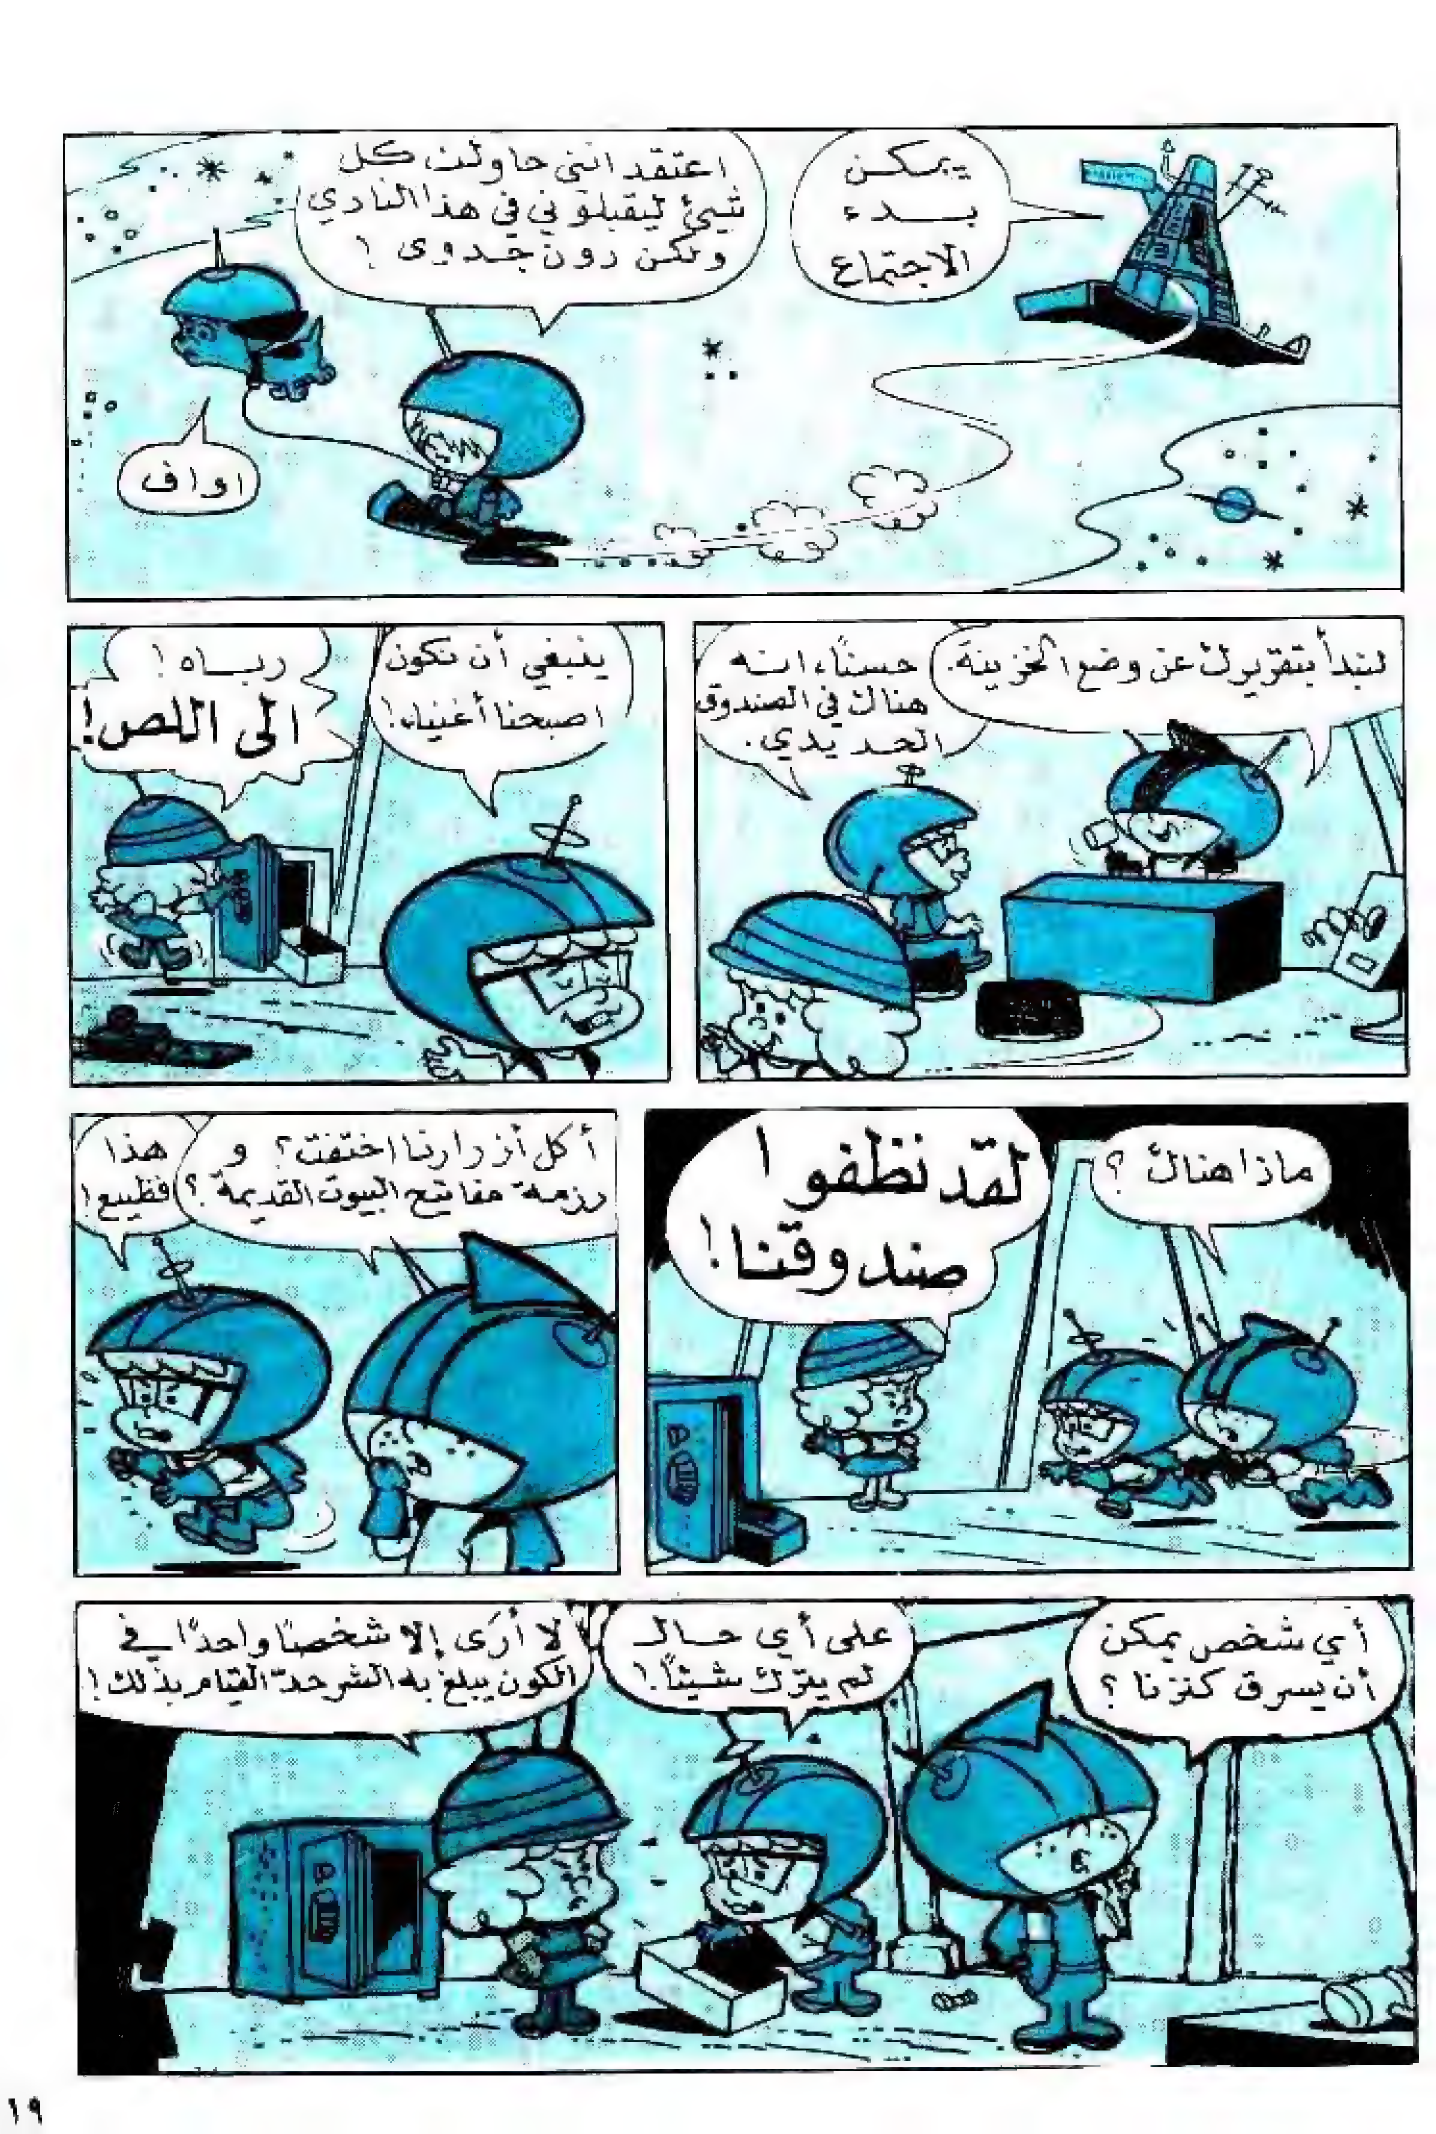 يمكن
بدء
الاجتماع
اعتقد انني حاولت كل
شيئ ليقبلوني في هذا النادي
ولكن دون جدوى !
اواف
لنبدأ بتقريرك عن وضع الخزينة.
حسنًا، انه
هناك في الصندوق
الحديدي.
ينبغي أن نكون
اصبحنا أغنياء!
رباه !
الى اللص!
ماذا هناك ؟
لقد نظفوا
صندوقنا !
أكل أزرارنا اختفت ؟ و
رزمة مفاتيح البيوت القديمة ؟
هذا
فظيع !
أي شخص يمكن
أن يسرق كنزنا ؟
على أي حال
لم يترك شيئًا !
لا أرَى إلا شخصًا واحدًا في
الكون يبلغ به الشر حدّ القيام بذلك !
١٩